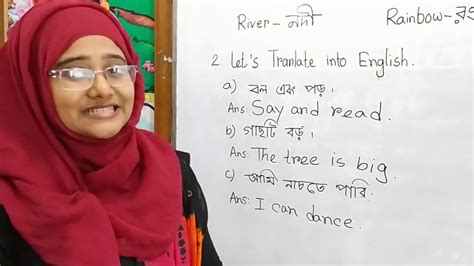 River - নদী
Rainbow - রং
2. Let's Tranlate into English.
a) বল এবং পড়।
Ans: Say and read.
b) গাছটি বড়।
Ans: The tree is big.
c) আমি নাচতে পারি.
Ans: I can dance.